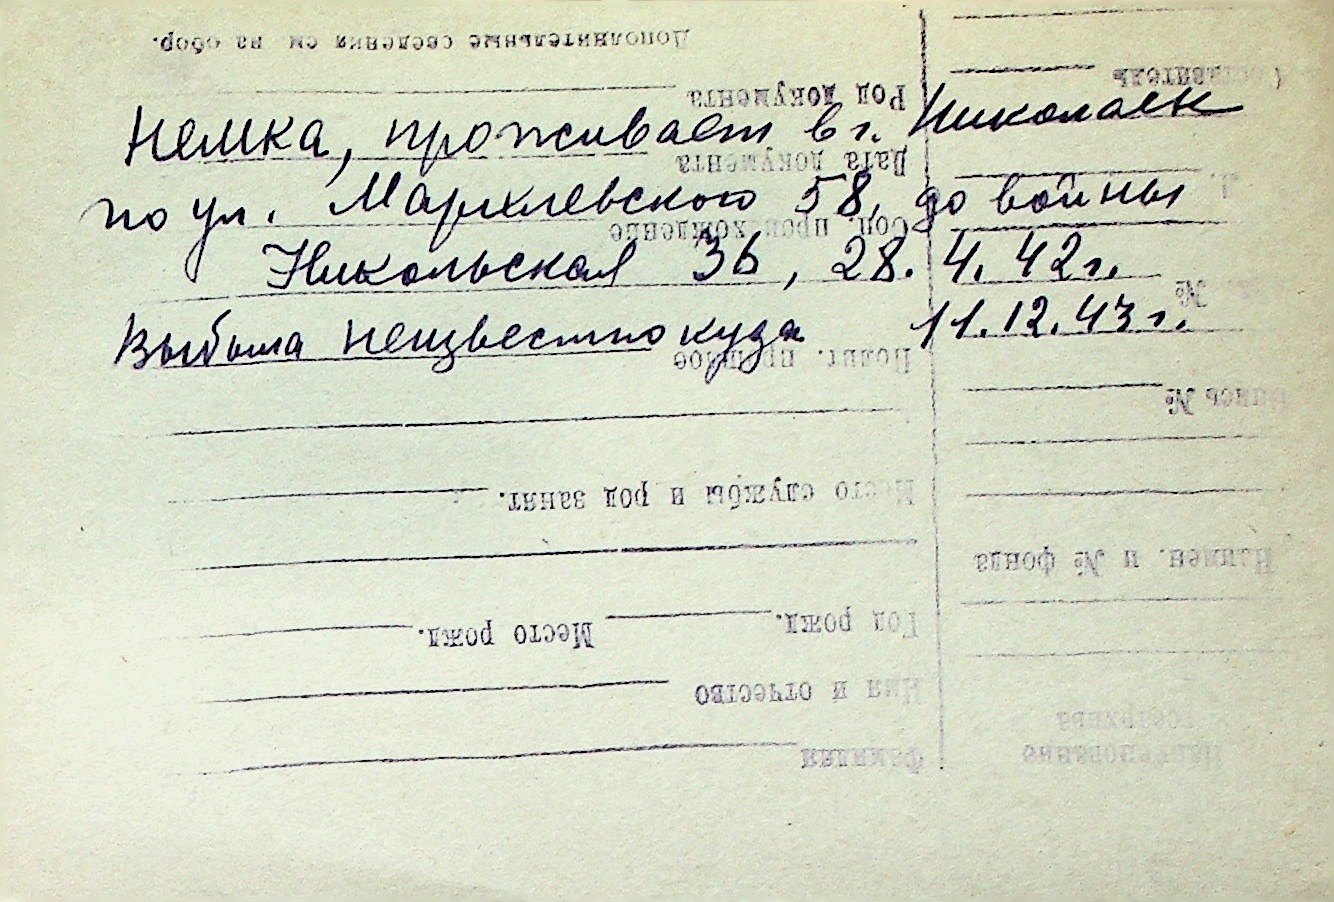 Дополнительные сведения см на обор.
Составитель
Род документа
Немка, проживает в г. Николаев
Дата документа
по ул. Мархлевского 58, до войны
Соц. происхождение
Никольская 36, 28.4.42г.
№
Выбыла неизвестно куда 11.12.43г.
Полит. прошлое
Опись №
Место службы и род занят.
Наимен. и № фонда
Год рожд. Место рожд.
Имя и отчество
Госархива
Фамилия
Наименование